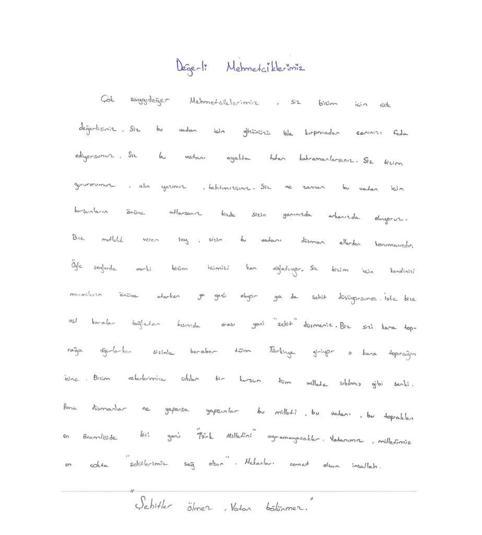 Değerli Mehmetciklerimiz
Çok saygıdeğer Mehmetciklerimiz, siz bizim için çok
değerlisiniz. Siz bu vatan için gözünüzü bile kırpmadan canınızı feda
ediyorsunuz. Siz bu vatanı ayakta tutan kahramanlarsınız. Siz bizim
gururumuz, alın yazımız, Siz ne zaman bu vatan için
kurşunların önüne atlarsanız bizde sizin yanınızda arkanızda oluyoruz.
Bize mutluluk veren şey, sizin bu vatanı düşman ellerden korumanızdır.
Öyle sanki bizim içimizi kan ağlatıyor. Siz bizim için kendinizi
önüne atarken ya gazi oluyor ya da şehit düşüyorsunuz. İşte bizi
asıl yani "şehit" düşmeniz. Biz sizi kara top-
rağa sizinle beraber tüm Türkiye giriyor o kara toprağın
içine. Bizim askerlerimize sıkılan bir kurşun, tüm millete sıkılmış gibi sanki.
Ama düşmanlar ne yaparsa yapsınlar bu milleti, bu vatanı, bu toprakları
en önemliside bizi yani "Türk Milletini" Vatanımız, milletimiz
en çokta "şehitlerimiz sağ olsun". Mekanları cennet olsun inşallah.
"Şehitler ölmez, Vatan bölünmez."